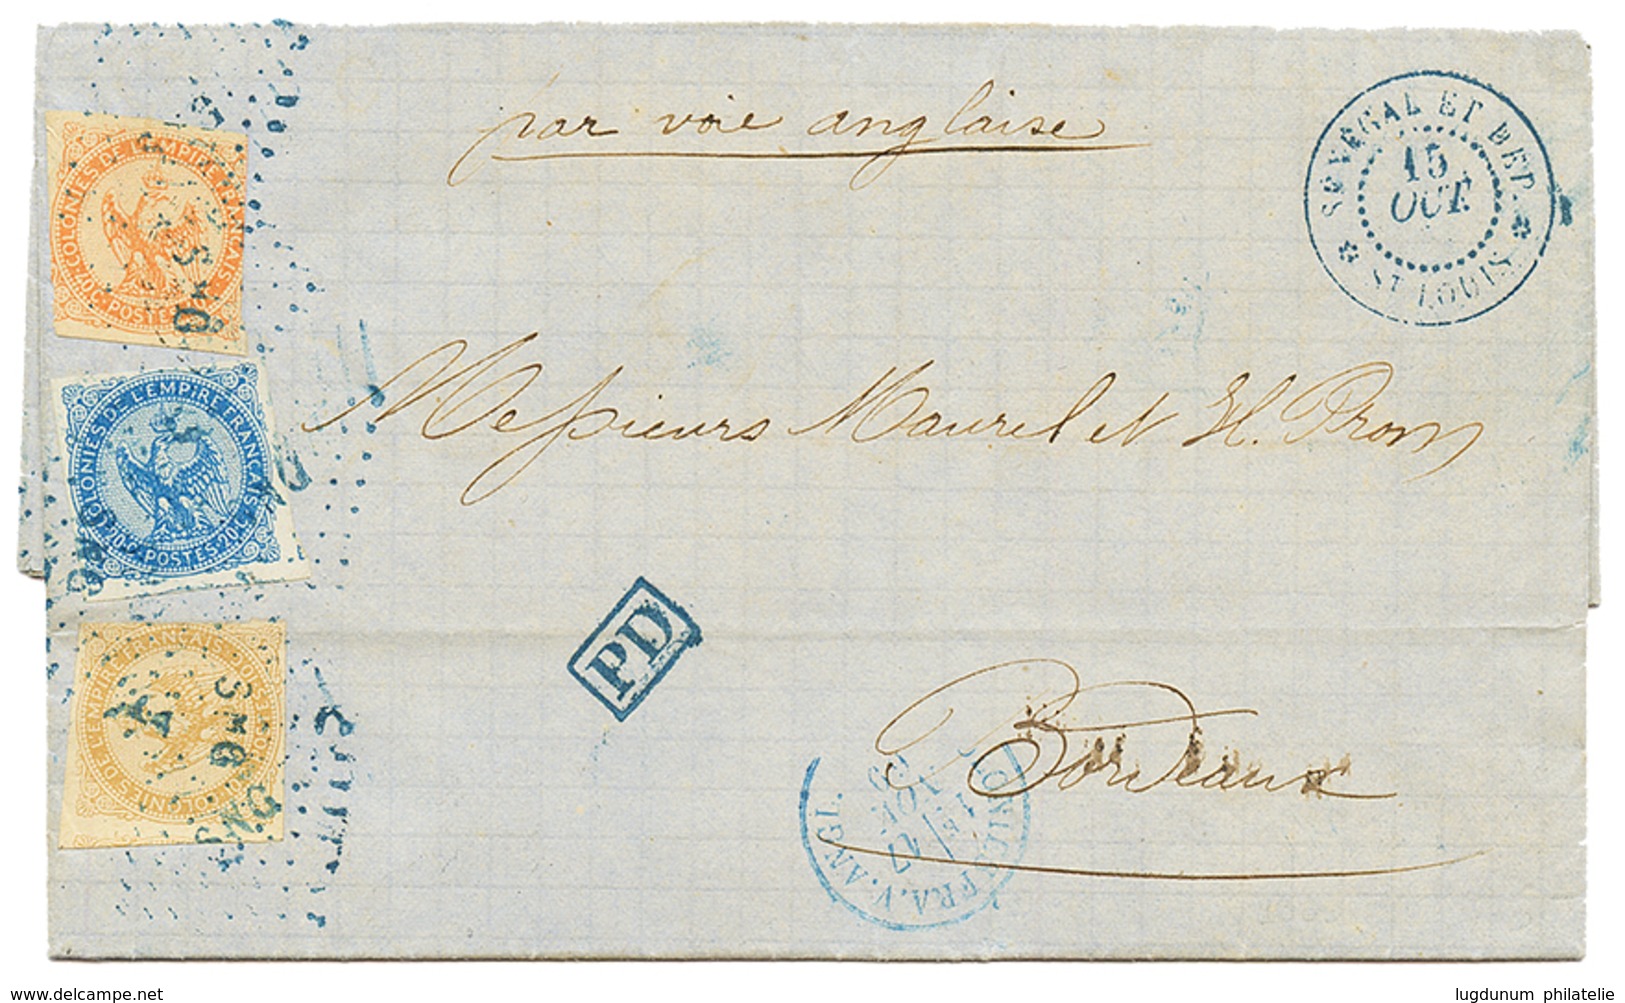 par voie anglaise
SENEGAL ET DEP.
15
OCT.
ST LOUIS
COLONIES DE L'EMPIRE FRANÇAIS
40 c. POSTES 40 c.
COLONIES DE L'EMPIRE FRANÇAIS
20 c. POSTES 20 c.
COLONIES DE L'EMPIRE FRANÇAIS
POSTES
Messieurs Maurel et H. Prom
PD
Bordeaux
17
NOV.
69
www.delcampe.net
lugdunum philatelie